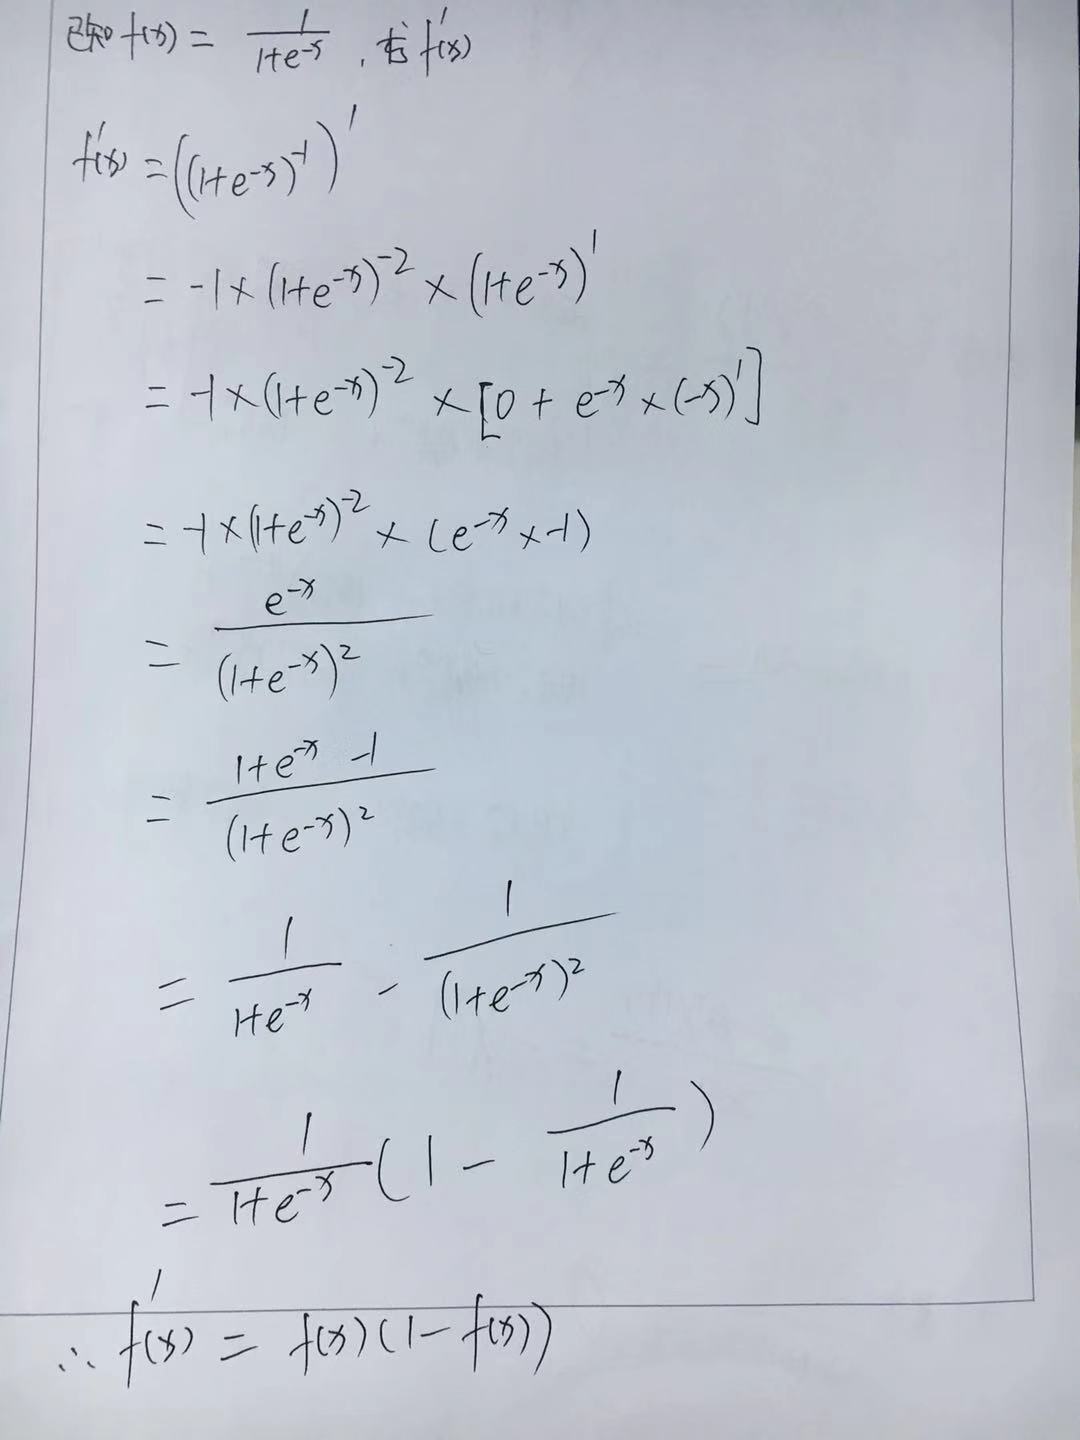 已知 f(x) = 1/(1+e^-x) , 求 f'(x)
f'(x) = ((1+e^-x)^-1)'
= -1×(1+e^-x)^-2 × (1+e^-x)'
= -1×(1+e^-x)^-2 × [0 + e^-x × (-x)']
= -1×(1+e^-x)^-2 × (e^-x × -1)
= e^-x/(1+e^-x)^2
= (1+e^-x -1)/(1+e^-x)^2
= 1/(1+e^-x) - 1/(1+e^-x)^2
= 1/(1+e^-x) (1 - 1/(1+e^-x))
∴ f'(x) = f(x)(1-f(x))